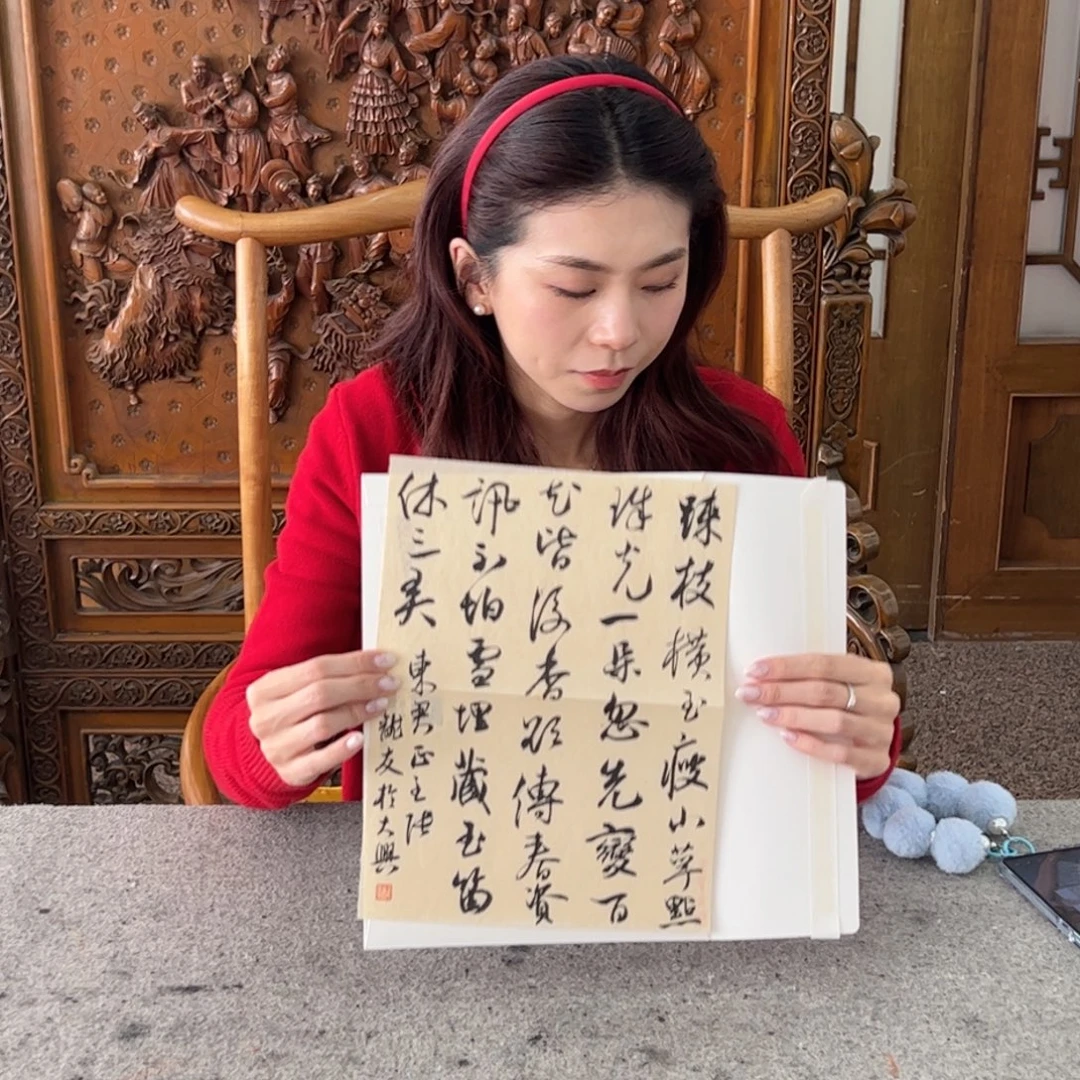 踈枝橫玉瘦小萼點
珠光一朵忽先變百
花皆後香欲傳春資
訊不怕雪埋藏玉笛
休三弄東君正主張
友於大興